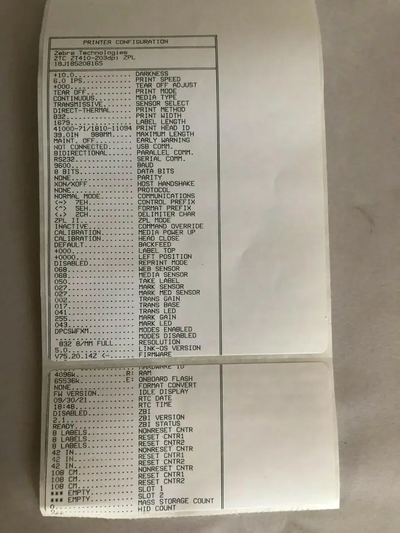 PRINTER CONFIGURATION
Zebra Technologies
ZTC ZT410-203dpi ZPL
18J185208165
+10.0.............. DARKNESS
6.0 IPS............ PRINT SPEED
+000............... TEAR OFF ADJUST
TEAR OFF........... PRINT MODE
CONTINUOUS......... MEDIA TYPE
TRANSMISSIVE....... SENSOR SELECT
DIRECT-THERMAL..... PRINT METHOD
832................ PRINT WIDTH
1679............... LABEL LENGTH
41000-71/1810-11094 PRINT HEAD ID
39.0IN 988MM....... MAXIMUM LENGTH
MAINT. OFF......... EARLY WARNING
NOT CONNECTED...... USB COMM.
BIDIRECTIONAL...... PARALLEL COMM.
RS232.............. SERIAL COMM.
9600............... BAUD
8 BITS............. DATA BITS
NONE............... PARITY
XON/XOFF........... HOST HANDSHAKE
NONE............... PROTOCOL
NORMAL MODE........ COMMUNICATIONS
<~> 7EH............ CONTROL PREFIX
<^> 5EH............ FORMAT PREFIX
<,> 2CH............ DELIMITER CHAR
ZPL II............. ZPL MODE
INACTIVE........... COMMAND OVERRIDE
CALIBRATION........ MEDIA POWER UP
CALIBRATION........ HEAD CLOSE
DEFAULT............ BACKFEED
+000............... LABEL TOP
+0000.............. LEFT POSITION
DISABLED........... REPRINT MODE
068................ WEB SENSOR
068................ MEDIA SENSOR
050................ TAKE LABEL
027................ MARK SENSOR
027................ MARK MED SENSOR
002................ TRANS GAIN
017................ TRANS BASE
041................ TRANS LED
255................ MARK GAIN
043................ MARK LED
DPCSWFXM........... MODES ENABLED
................... MODES DISABLED
832 8/MM FULL...... RESOLUTION
5.0................ LINK-OS VERSION
V75.20.14Z <-...... FIRMWARE
HARDWARE ID
4096k............R: RAM
65536k...........E: ONBOARD FLASH
NONE............... FORMAT CONVERT
FW VERSION......... IDLE DISPLAY
09/30/21........... RTC DATE
18:48.............. RTC TIME
DISABLED........... ZBI
2.1................ ZBI VERSION
READY.............. ZBI STATUS
8 LABELS........... NONRESET CNTR
8 LABELS........... RESET CNTR1
8 LABELS........... RESET CNTR2
42 IN.............. NONRESET CNTR
42 IN.............. RESET CNTR1
42 IN.............. RESET CNTR2
108 CM............. NONRESET CNTR
108 CM............. RESET CNTR1
108 CM............. RESET CNTR2
*** EMPTY.......... SLOT 1
*** EMPTY.......... SLOT 2
0.................. MASS STORAGE COUNT
HID COUNT